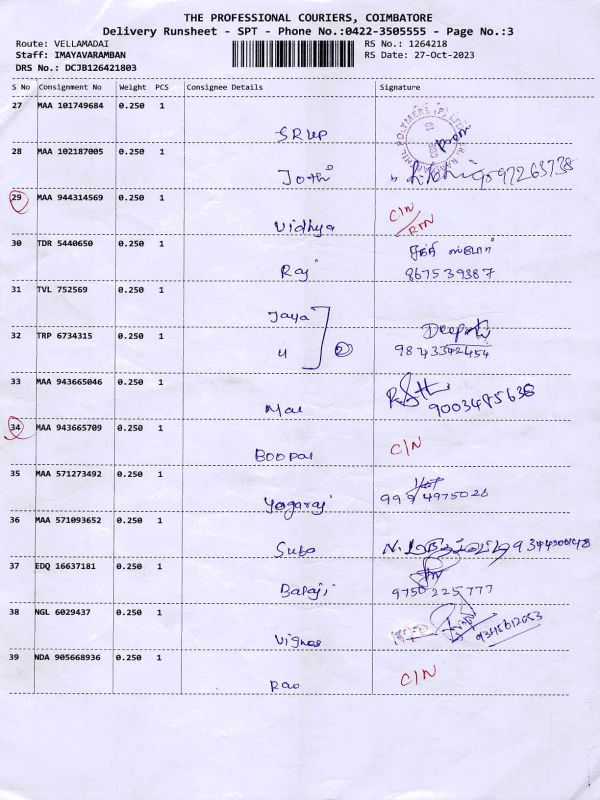 THE PROFESSIONAL COURIERS, COIMBATORE
Delivery Runsheet - SPT - Phone No.:0422-3505555 - Page No.:3
Route: VELLAMADAI
RS No.: 1264218
Staff: IMAYAVARAMBAN
RS Date: 27-Oct-2023
DRS No.: DCJB126421803
S No Consignment No Weight PCS Consignee Details Signature
27 MAA 101749684 0.250 1
SRVP
28 MAA 102187005 0.250 1
Jothi
29 MAA 944314569 0.250 1 C/N
Vidhya RTN
30 TDR 5440650 0.250 1
Raj 867539387
31 TVL 752569 0.250 1
Jaya
32 TRP 6734315 0.250 1 Deepthi
11 2 9843342454
33 MAA 943665046 0.250 1
Mal 9003475638
34 MAA 943665709 0.250 1 C/N
Boopal
35 MAA 571273492 0.250 1
Yogaraj 9994975026
36 MAA 571093652 0.250 1
Suba
37 EDQ 16637181 0.250 1
Balaji 9750225777
38 NGL 6029437 0.250 1
Vignes 9345612053
39 NDA 905668936 0.250 1 C/N
Rao